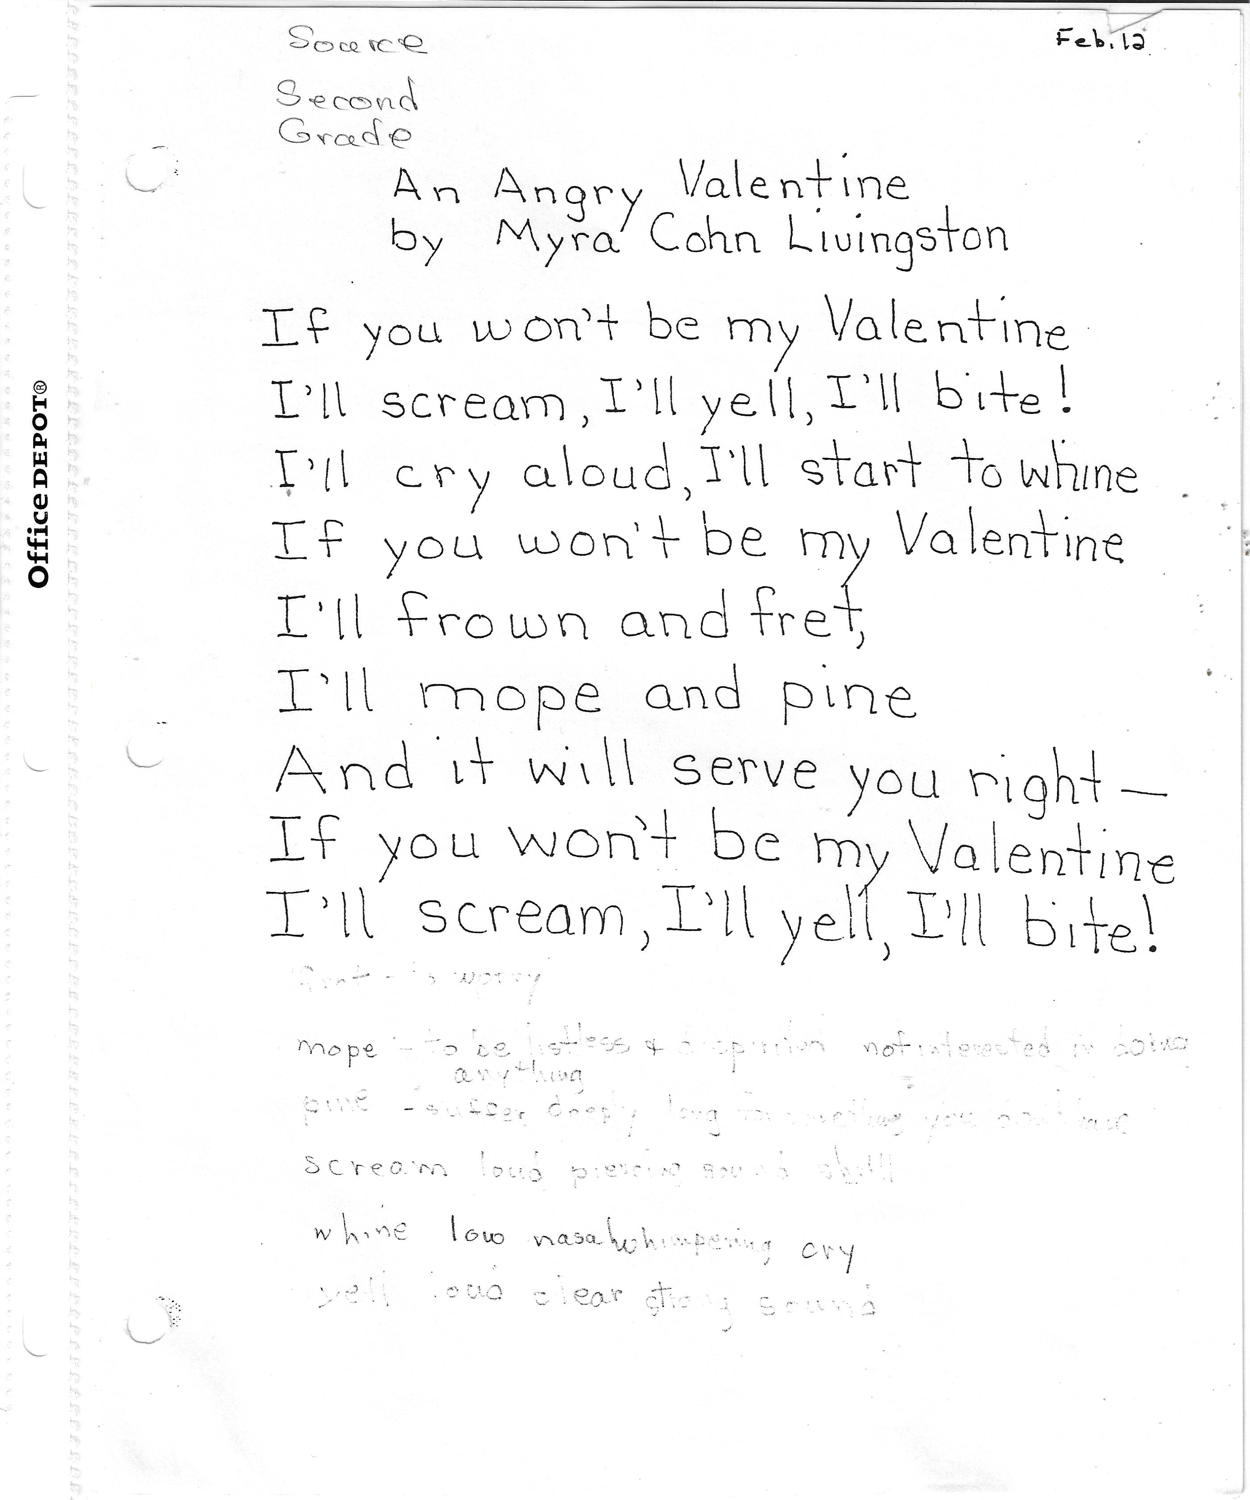 Source
Feb. 12
Second
Grade
An Angry Valentine
by Myra Cohn Livingston
If you won't be my Valentine
I'll scream, I'll yell, I'll bite!
I'll cry aloud, I'll start to whine
If you won't be my Valentine
I'll frown and fret,
I'll mope and pine
And it will serve you right—
If you won't be my Valentine
I'll scream, I'll yell, I'll bite!
to worry
mope - to be listless & not interested in doing
anything
pine - suffer deeply long
scream loud piercing sound shrill
whine low nasal whimpering cry
yell loud clear strong sound
Office DEPOT®